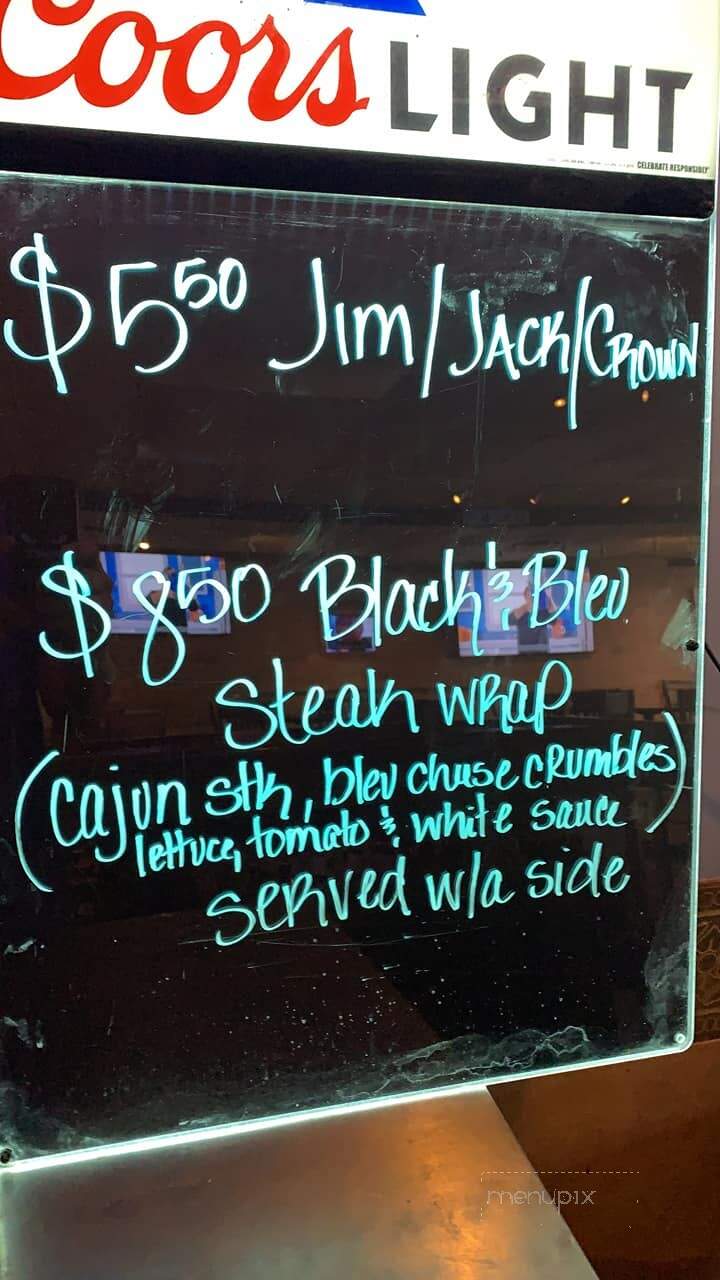 Coors LIGHT
CELEBRATE RESPONSIBLY
$5.50 Jim/Jack/Crown
$8.50 Black & Bleu
Steak wrap
(Cajun stk, bleu chese crumbles
lettuce, tomato & white sauce)
served w/a side
menupix